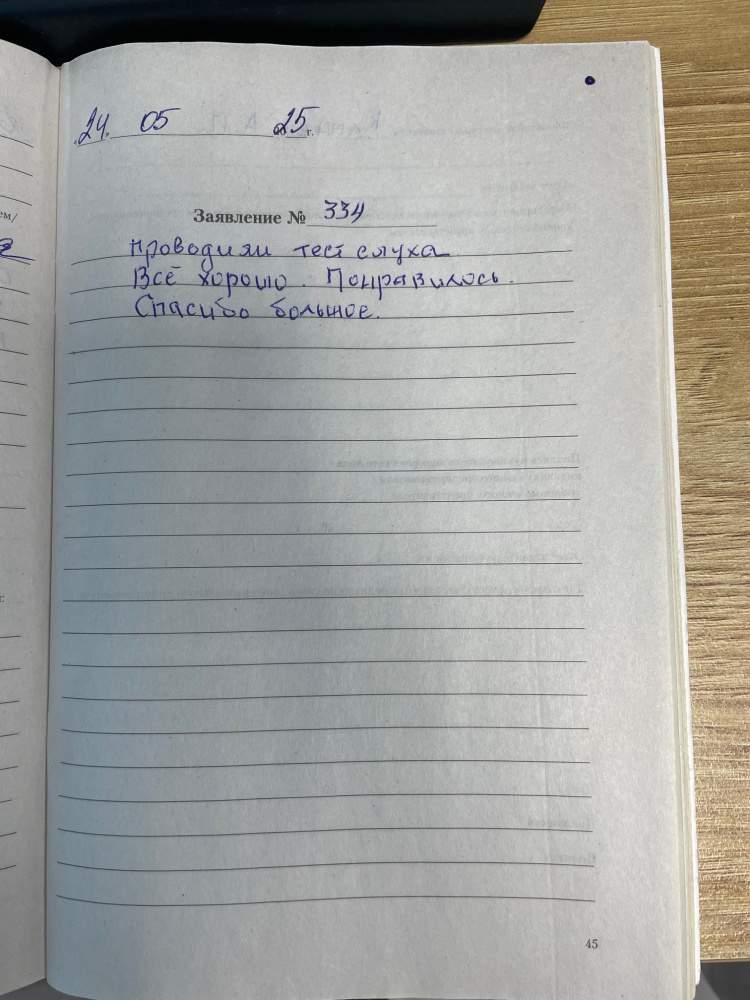 24. 05 25 г.
Заявление № 334
проводили тест слуха
Всё хорошо. Понравилось.
Спасибо большое.
45